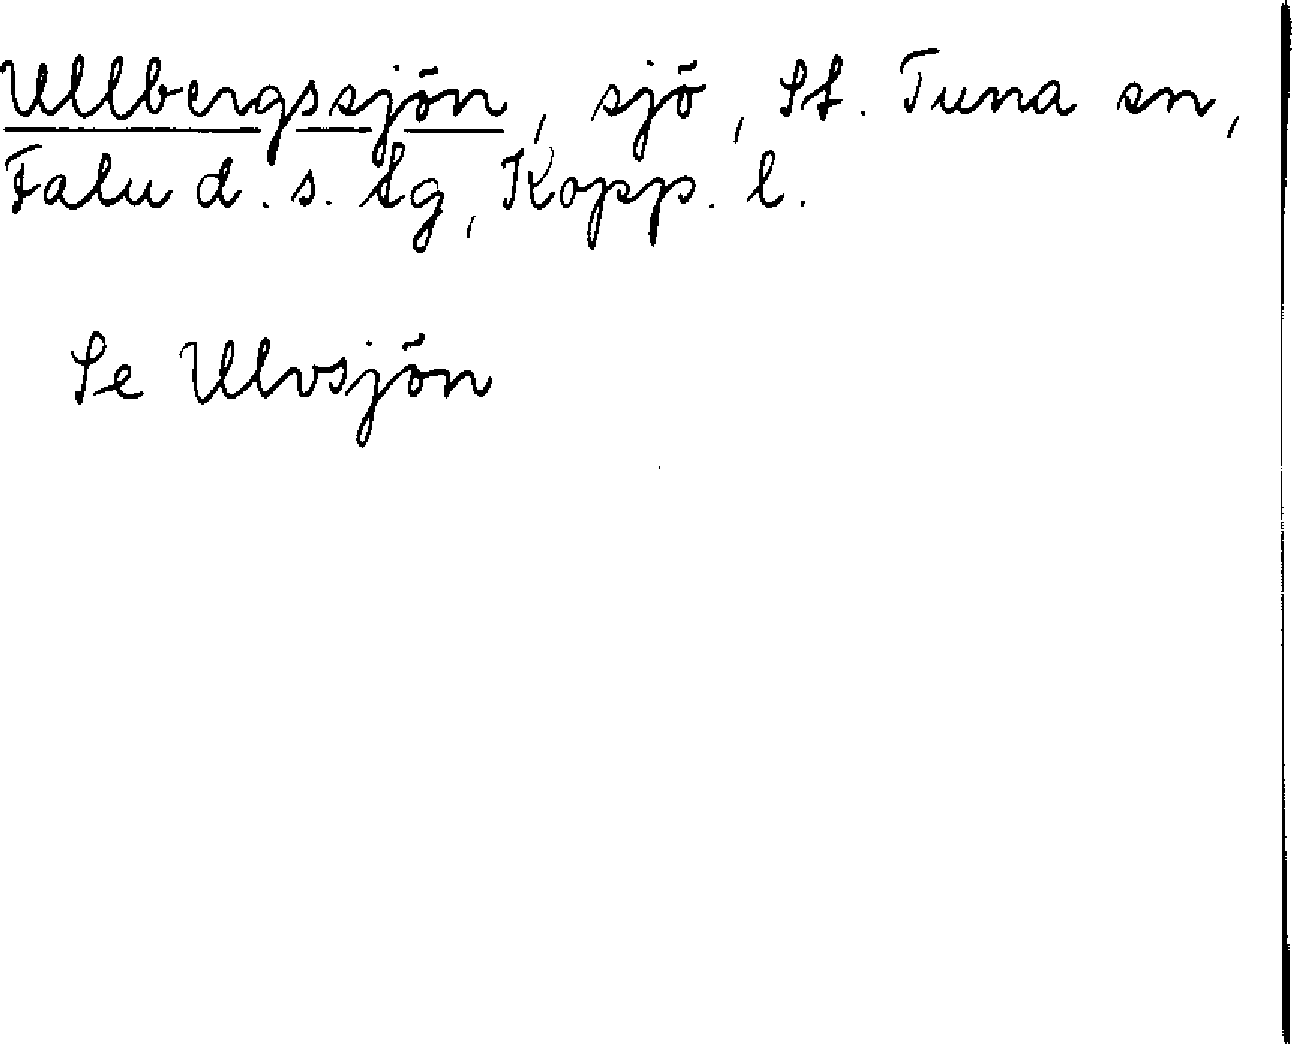 Ullbergssjön, sjö, St. Tuna sn,
Falu d. s. tg, Kopp. l.
Se Ulvsjön